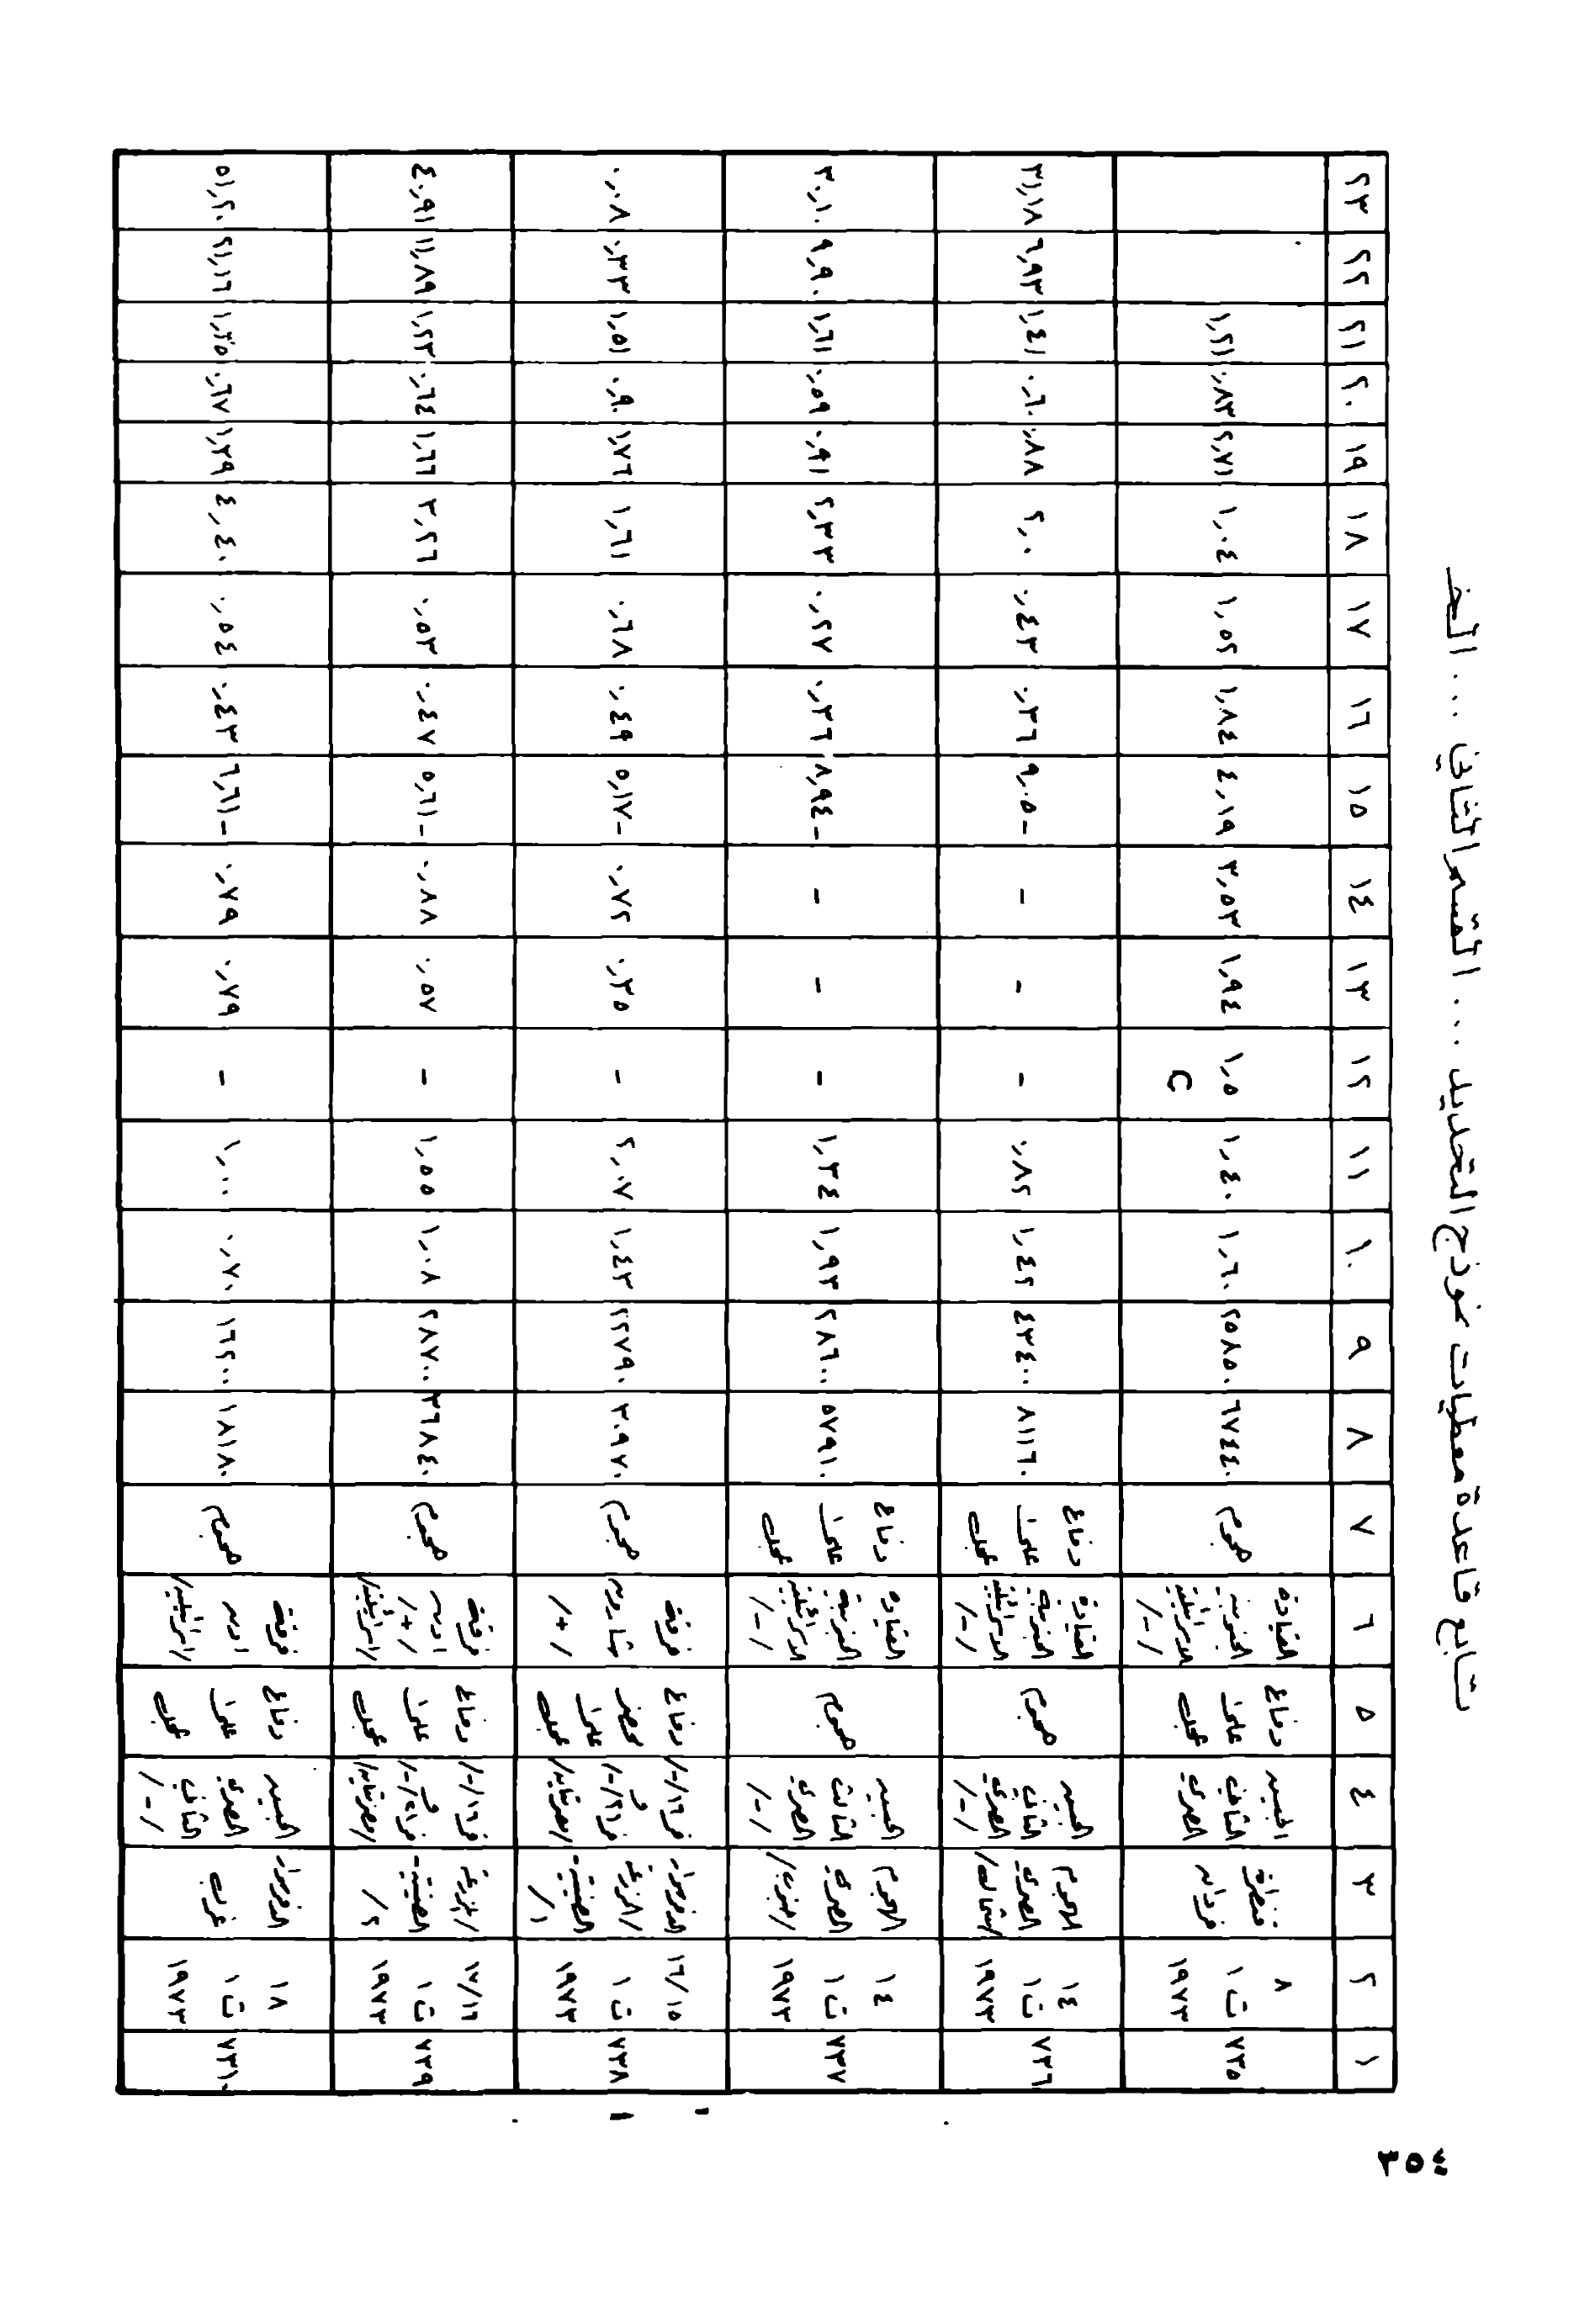 تابع قاعدة معطيات نموذج التحديد ... القسم الثاني ... الخ
١ ٢ ٣ ٤ ٥ ٦ ٧ ٨ ٩ ١٠ ١١ ١٢ ١٣ ١٤ ١٥ ١٦ ١٧ ١٨ ١٩ ٢٠ ٢١ ٢٢ ٢٣
٧٣٥
٨
ت ١
١٩٧٣
قنطرة
فردان
الجيش
الثاني
المصري
دفاع
على
عجل
القيادة
الجنوبية
الاسرائيلية
/-/
هجوم
٦٧٤٤٠ ٢٥٨٥٠ ١,٦٠ ١,٤٠ ١,٥
C
١,٩٤ ٣,٥٣ ٤,١٩ ١,٨٤ ١,٥٢ ١,٠٤ ٢,٧١ ٠,٨٣ ١,٢١
٧٣٦
١٤
ت ١
١٩٧٣
الهجوم
المصري
/شمالا/
الجيش
الثاني
المصري
/-/
هجوم
القيادة
الجنوبية
الاسرائيلية
/-/
دفاع
على
عجل
٨١١٦٠ ٤٣٤٠٠ ١,٤٢ ٠,٨٢ - - - ٩,٠٥- ٠,٣٦ ٠,٤٣ ٢,٠٠ ٠,٨٨ ٠,٦٠ ١,٤١ ٦,٩٣ ٣١,١٨
٧٣٧
١٤
ت ١
١٩٧٣
الهجوم
المصري
/جنوبا/
الجيش
الثالث
المصري
/-/
هجوم
القيادة
الجنوبية
الاسرائيلية
/-/
دفاع
على
عجل
٥٧٩١٠ ٢٨٦٠٠ ١,٩٣ ١,٣٤ - - - ٨,٩٤- ٠,٣٦ ٠,٢٧ ٢,٣٣ ٠,٩١ ٠,٥٩ ١,٦١ ٩,٩٠ ٣٠,١٠
٧٣٨
١٦/١٥
ت ١
١٩٧٣
الدفرسوار
/المزرعة
الصينية-
١/
فر١٦/-/
و
فر٢١/-/
/مصريتان/
دفاع
محضر
على
عجل
فرقة
شارون
/+/
هجوم
٣٠٩٧٠ ٢٢٧٩٠ ١,٤٣ ٢,٠٧ - ٠,٣٥ ٠,٧٢ ٥,١٧- ٠,٤٩ ٠,٦٨ ١,٦١ ١,٧٦ ٠,٩٠ ١,٥١ ٠,٣٣ ٠,٠٨
٧٣٩
١٧/١٦
ت ١
١٩٧٣
/مزرعة
الصينية-
٢/
فر١٦/-/
و
فر٢١/-/
/مصريتان/
دفاع
على
عجل
فرقة
ادن
/+/
/اسرائيلية/
هجوم
٣٦٨٤٠ ٢٨٧٠٠ ١,٠٨ ١,٥٥ - ٠,٥٧ ٠,٨٨ ٥,٦١- ٠,٤٧ ٠,٥٣ ٣,٢٦ ١,٦٦ ٠,٦٤ ١,٢٣ ١١,٨٩ ٤٠,٩١
٧٣١٠
١٨
ت ١
١٩٧٣
الدفرسوار
غرب
الجيش
المصري
الثاني
/-/
دفاع
على
عجل
فرقة
ادن
/اسرائيلية/
هجوم
١٨١٨٠ ١٦٢٠٠ ٠,٧٠ ١,٠٠ - ٠,٧٩ ٠,٧٩ ٦,٦١- ٠,٤٣ ٠,٥٤ ٤,٤٠ ١,٣٩ ٠,٦٧ ١,٣٥ ٢١,١٦ ٥١,٢٠
٣٥٤